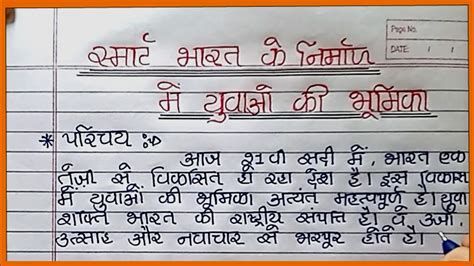 Page No.
DATE: / /
स्मार्ट भारत के निर्माण
में युवाओं की भूमिका
* परिचय :→
आज 21वी सदी में, भारत एक
तेज़ी से विकसित हो रहा देश है। इस विकास
में युवाओं की भूमिका अत्यंत महत्वपूर्ण है। युवा
शक्ति भारत की राष्ट्रीय संपत्ति है। वे ऊर्जा,
उत्साह और नवाचार से भरपूर होते है।